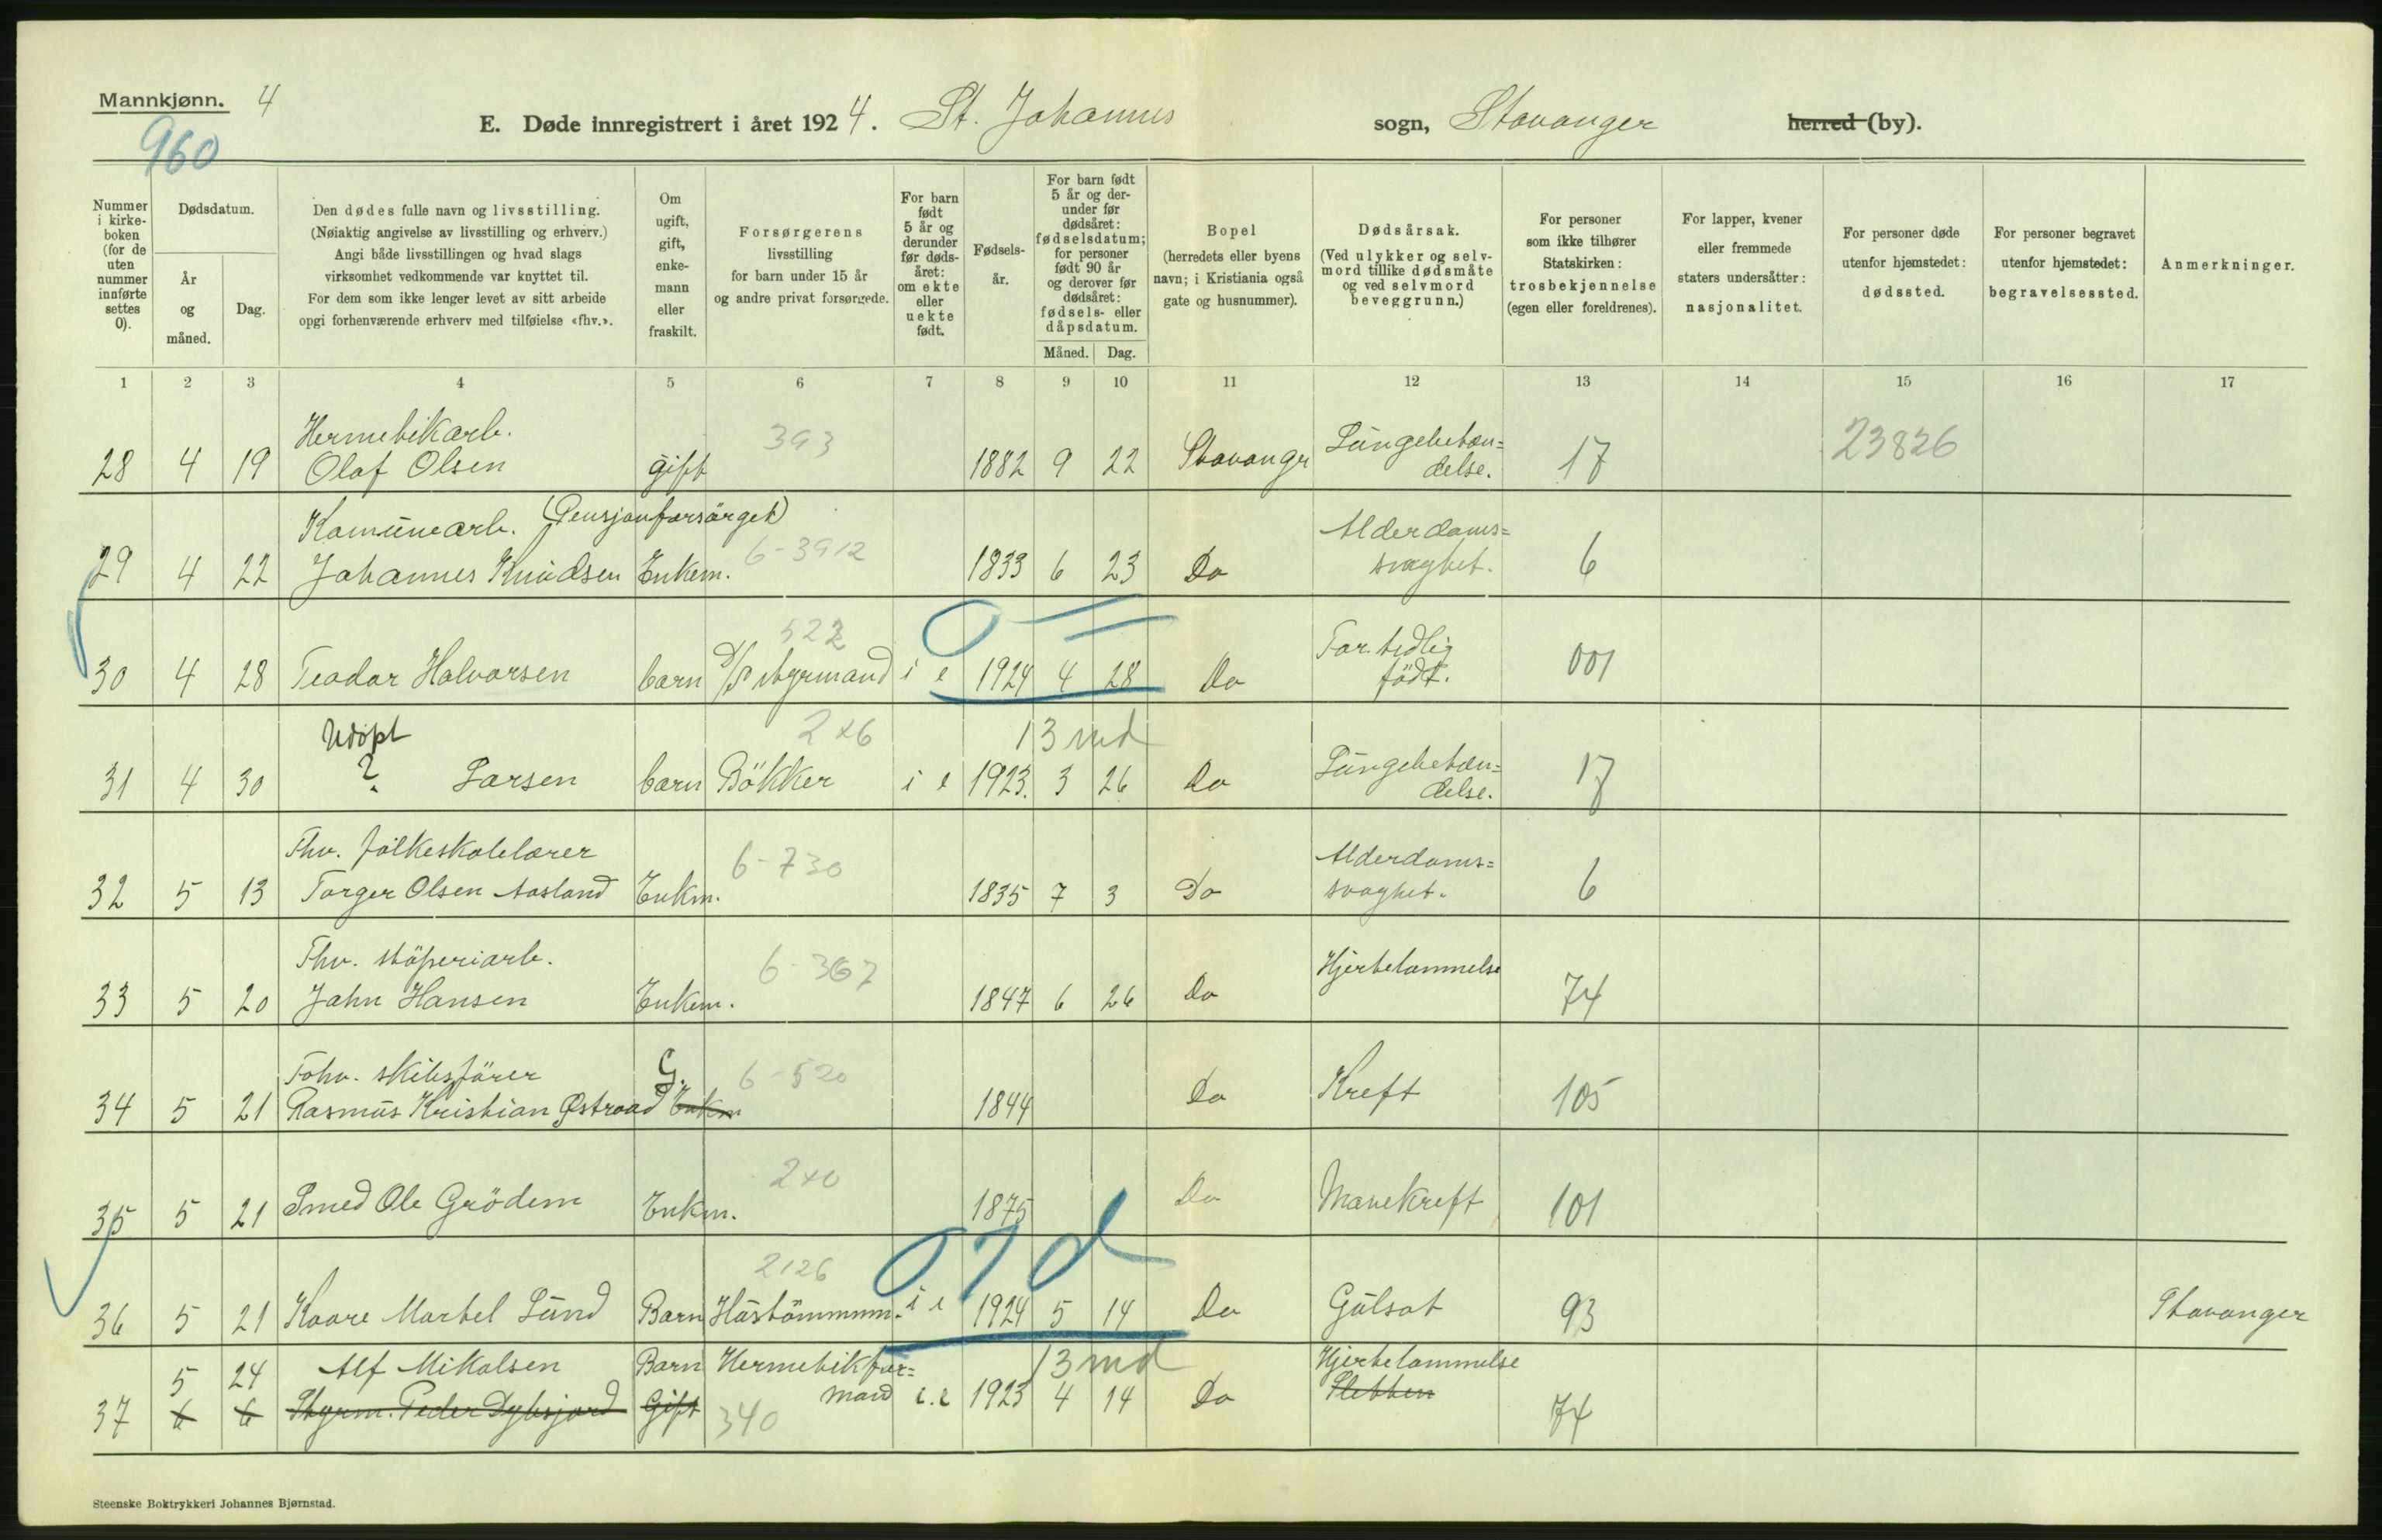 Mannkjønn. 4
960
E. Døde innregistrert i året 1924. St. Johannes sogn, Stavanger herred (by).
Nummer i kirke-boken (for de uten nummer innførte settes 0).
Dødsdatum.
År og måned.
Dag.
Den dødes fulle navn og livsstilling.
(Nøiaktig angivelse av livsstilling og erhverv.)
Angi både livsstillingen og hvad slags
virksomhet vedkommende var knyttet til.
For dem som ikke lenger levet av sitt arbeide
opgi forhenværende erhverv med tilføielse «fhv.».
Om ugift, gift, enke-mann eller fraskilt.
Forsørgerens
livsstilling
for barn under 15 år
og andre privat forsørgede.
For barn født 5 år og derunder før døds-året: om ekte eller uekte født.
Fødsels-år.
For barn født 5 år og der-under før dødsåret: fødselsdatum; for personer født 90 år og derover før dødsåret: fødsels- eller dåpsdatum.
Måned. Dag.
Bopel
(herredets eller byens
navn; i Kristiania også
gate og husnummer).
Dødsårsak.
(Ved ulykker og selv-
mord tillike dødsmåte
og ved selvmord
beveggrunn.)
For personer
som ikke tilhører
Statskirken:
trosbekjennelse
(egen eller foreldrenes).
For lapper, kvener
eller fremmede
staters undersåtter:
nasjonalitet.
For personer døde
utenfor hjemstedet:
dødssted.
For personer begravet
utenfor hjemstedet:
begravelsessted.
Anmerkninger.
1 2 3 4 5 6 7 8 9 10 11 12 13 14 15 16 17
Hermetikarb. 393 Lungebetæn= 23826
28 4 19 Olaf Olsen gift 1882 9 22 Stavangr delse. 17
Komunearb. (Pensjonforsørget) 6-3912 Alderdoms=
29 4 22 Johannes Knudsen Enkem. 1833 6 23 Do svaghet. 6
522 0 For tidlig
30 4 28 Teodor Halvorsen barn D/S styrmand i e 1924 4 28 Do født. 001
Udöpt 2x6 13 md Lungebetæn=
31 4 30 ? Larsen barn Bökker i e 1923. 3 26 Do delse. 17
Fhv. folkeskolelærer 6-730 Alderdoms=
32 5 13 Torger Olsen Aasland Enkm. 1835 7 3 Do svaghet. 6
Fhv. stöperiarb. 6-367 Hjertelammelse
33 5 20 John Hansen Enkem. 1847 6 26 Do 74
Fohv. skibsförer G. 6-520
34 5 21 Rasmus Kristian Østraad Enkm 1844 Do Kreft 105
2x0
35 5 21 Smed Ole Grödem Enkm. 1875 Do Mavekreft 101
2126 07d
36 5 21 Kaare Martel Lund Barn Hustömmerm. i e 1924 5 14 Do Gulsot 93 Stavanger
5 24 Alf Mikalsen Barn Hermetikfor= 13 md Hjertelammelse
37 6 6 Styrm. Peder Dybsjord Gift 340 mand i.e 1923 4 14 Do 74
Steenske Boktrykkeri Johannes Bjørnstad.